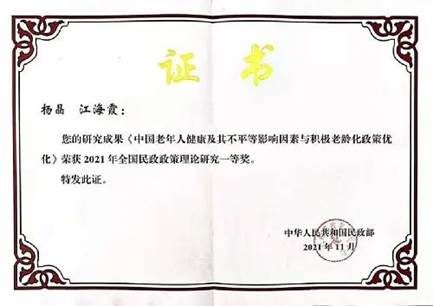 证 书
杨晶 江海霞：
您的研究成果《中国老年人健康及其不平等影响因素与积极老龄化政策优
化》荣获 2021 年全国民政政策理论研究一等奖。
特发此证。
中华人民共和国民政部
2021 年 11 月